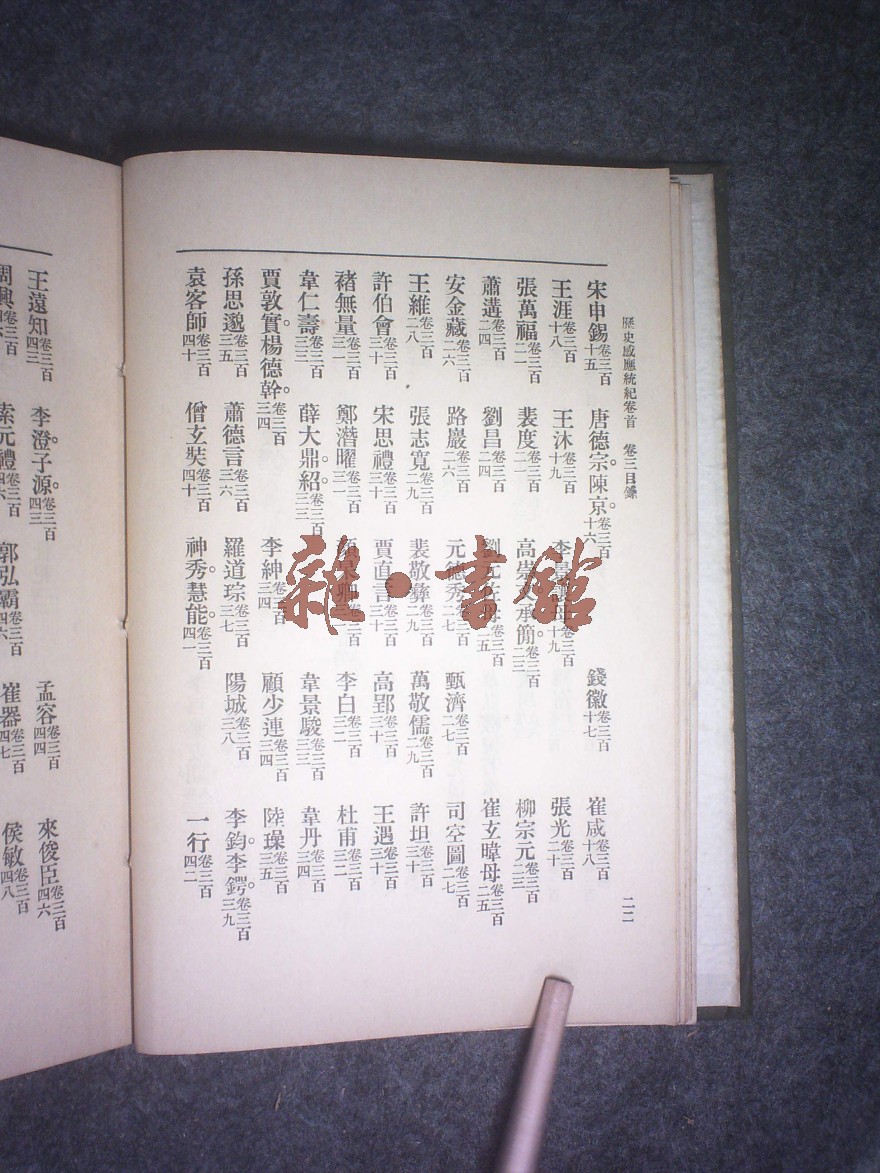 歷史感應統紀卷首 卷三目錄 二二
宋申錫卷三百十五 唐德宗。陳京。卷三百十六 錢徽卷三百十七 崔咸卷三百十八
王涯卷三百十八 王沐卷三百十九 李景卷三百十九 張光卷三百二十
張萬福卷三百二一 裴度卷三百二一 高崇承簡。卷三百二三 柳宗元卷三百二三
蕭遘卷三百二四 劉昌卷三百二四 劉母卷三百二五 崔玄暐母卷三百二五
安金藏。卷三百二六 路巖卷三百二六 元德秀卷三百二七 甄濟卷三百二七 司空圖卷三百二七
王維卷三百二八 張志寬卷三百二九 裴敬彝卷三百二九 萬敬儒卷三百二九 許坦卷三百三十
許伯會卷三百三十 宋思禮卷三百三十 賈直言卷三百三十 高郢卷三百三十 王遇卷三百三十
褚無量卷三百三一 鄭潛曜卷三百三一 卿卷三百 李白卷三百三二 杜甫卷三百三二
韋仁壽卷三百三三 薛大鼎。紹。卷三百三三 韋景駿卷三百三三 韋丹卷三百三四
賈敦實。楊德幹。卷三百三四 李紳卷三百三四 顧少連卷三百三四 陸璪卷三百三五
孫思邈卷三百三五 蕭德言卷三百三六 羅道琮卷三百三七 陽城卷三百三八 李鈞。李鍔。卷三百三九
袁客師卷三百四十 僧玄奘卷三百四十 神秀。慧能。卷三百四一 一行卷三百四二
王遠知卷三百四三 李澄。子源。卷三百四三 孟容卷三百四四 來俊臣卷三百四六
周興卷三百四六 索元禮卷三百四六 郭弘霸卷三百四六 崔器卷三百四七 侯敏卷三百四八
雜·書館